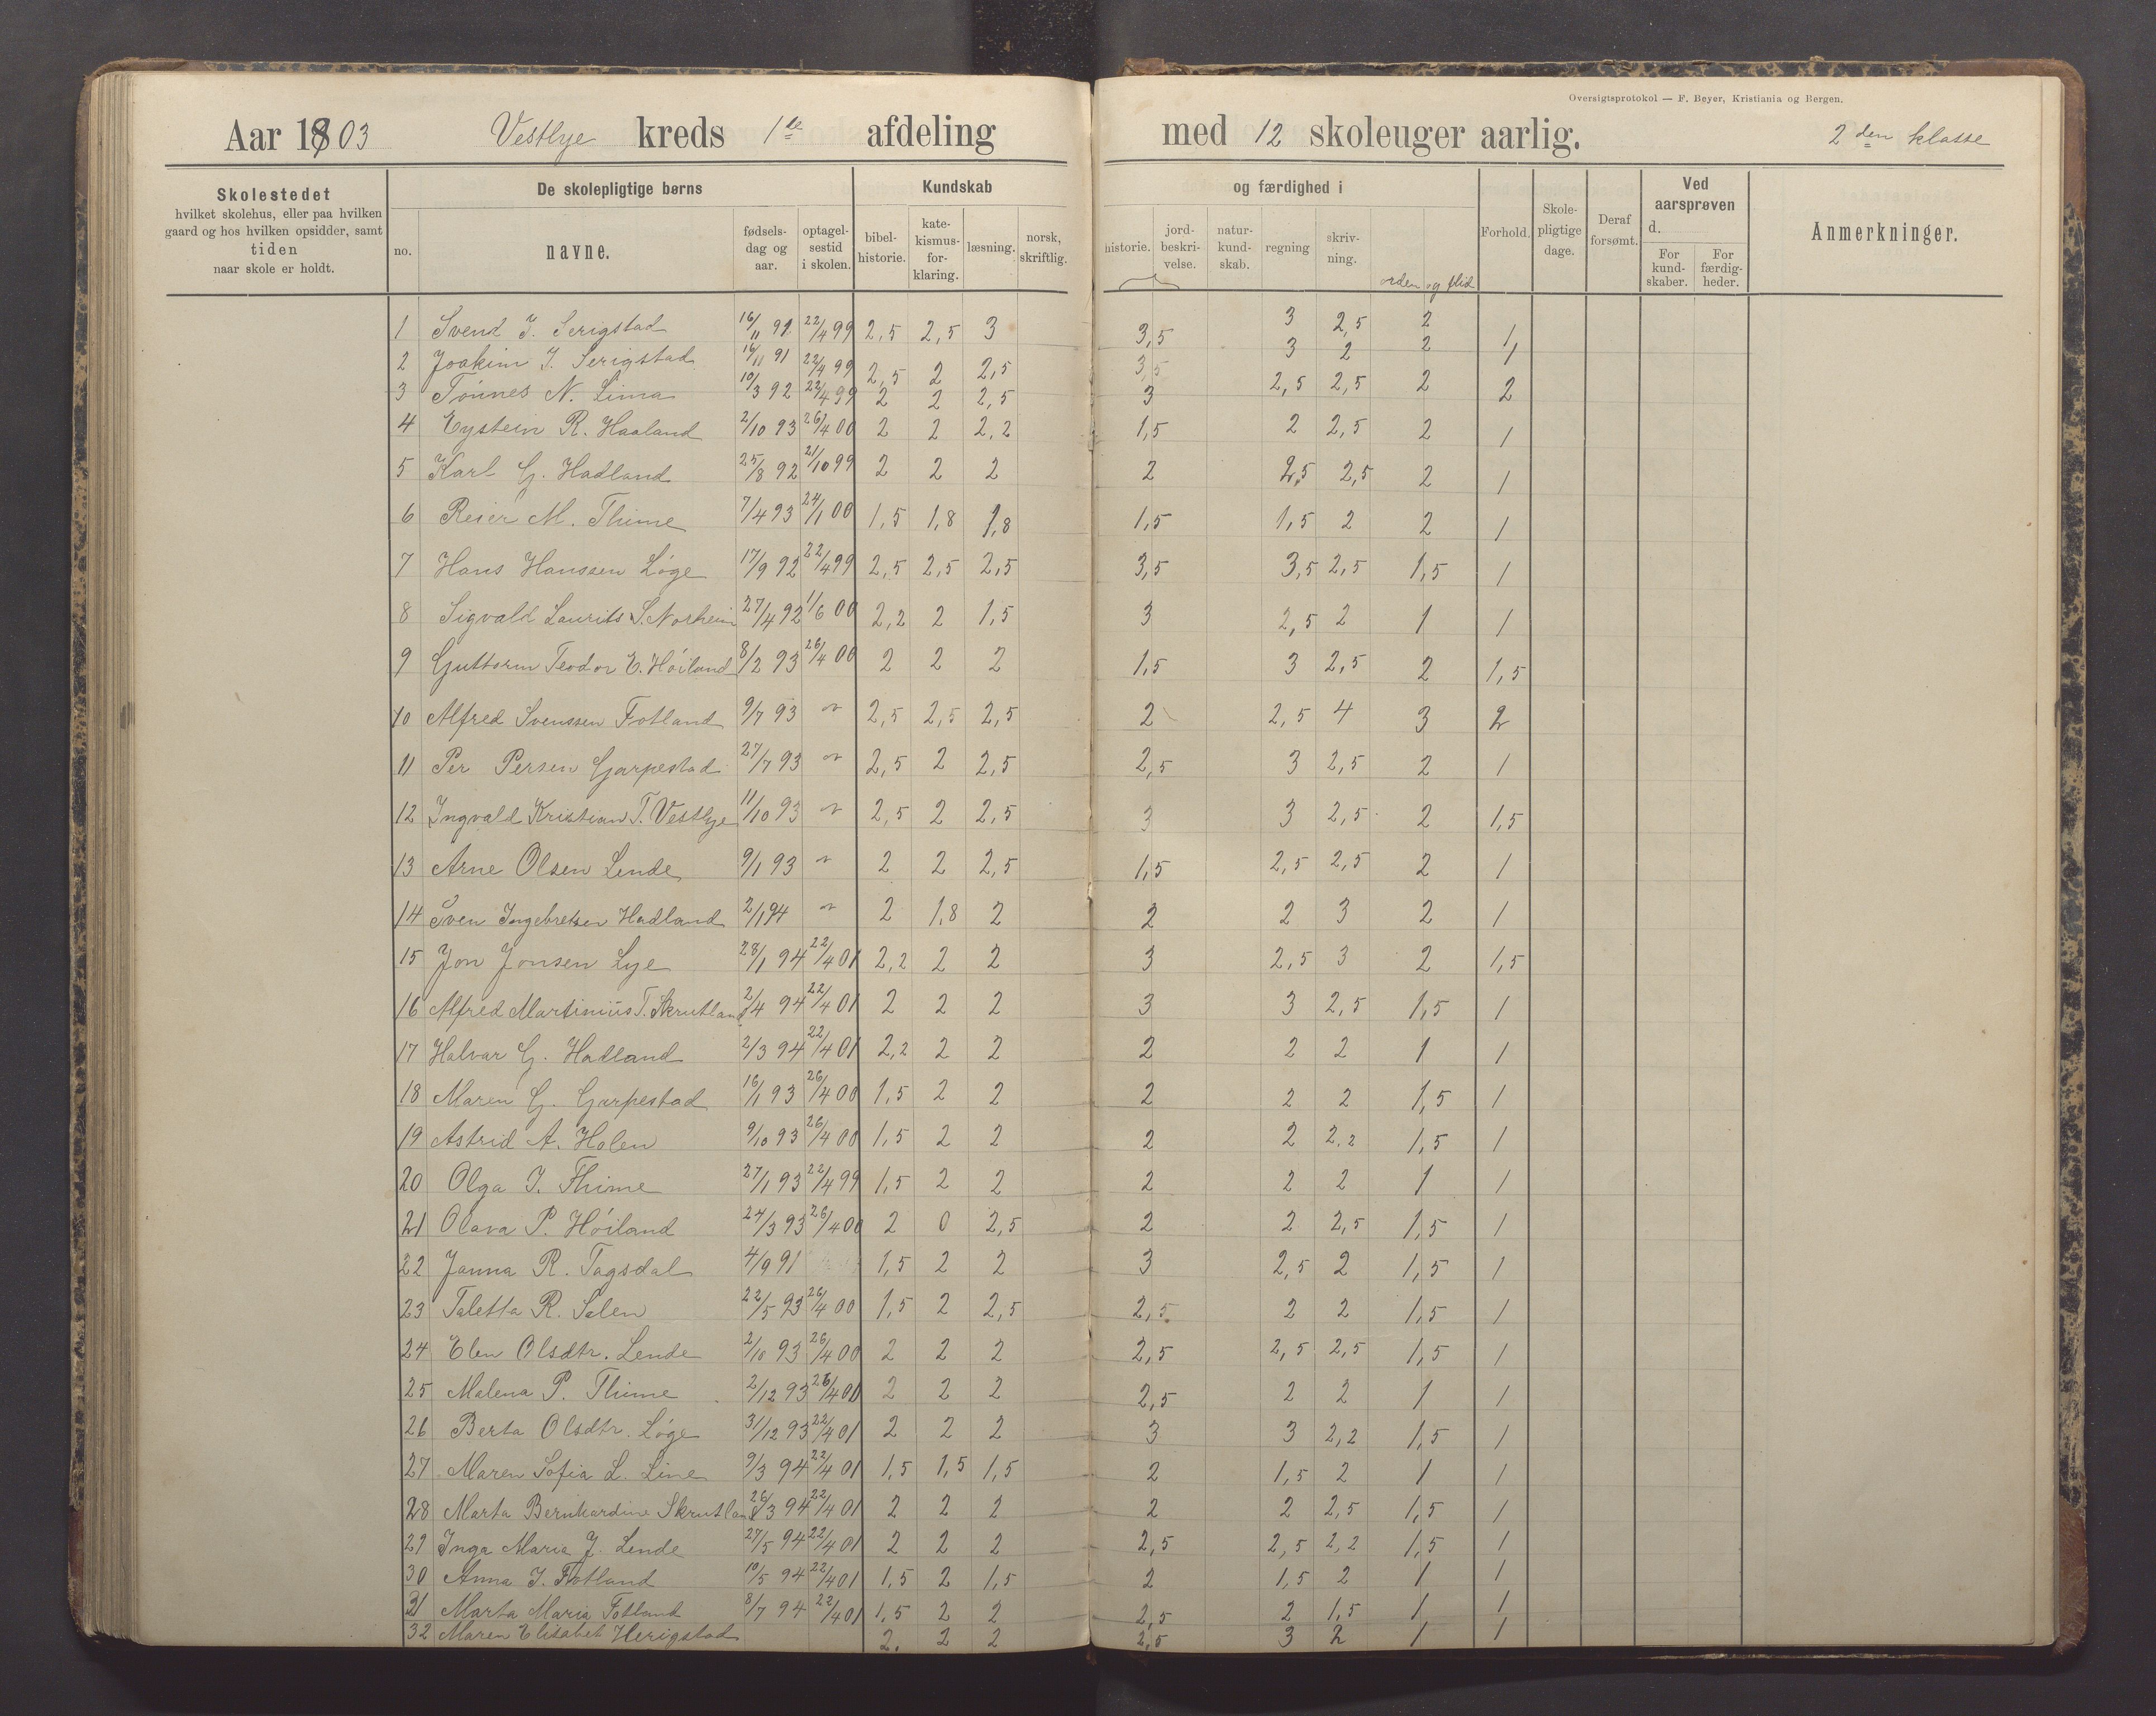 Oversigtsprotokol — F. Beyer, Kristiania og Bergen.
Aar 1903 Vestlye kreds 1ste afdeling med 12 skoleuger aarlig. 2den klasse
Skolestedet hvilket skolehus, eller paa hvilken gaard og hos hvilken opsidder, samt tiden naar skole er holdt.
De skolepligtige børns
no. navne. fødsels-dag og aar. optagel-sestid i skolen.
Kundskab og færdighed i
bibel-historie. kate-kismus-for-klaring. læsning. norsk, skriftlig. historie. jord-beskri-velse. natur-kund-skab. regning skriv-ning. orden og flid
Forhold. Skole-pligtige dage. Deraf forsømt. Ved aarsprøven d. For kund-skaber. For færdig-heder. Anmerkninger.
1 Svend J. Serigstad 16/11 91 22/4 99 2,5 2,5 3 3,5 3 2,5 2 1
2 Joakim J. Serigstad 16/11 91 22/4 99 2,5 2 2,5 3,5 3 2 2 1
3 Tönnes N. Lima 10/3 92 22/4 99 2 2 2,5 3 2,5 2,5 2 2
4 Eystein R. Haaland 2/10 93 26/4 00 2 2 2,2 1,5 2 2,5 2 1
5 Karl G. Hadland 25/8 92 21/10 99 2 2 2 2 2,5 2,5 2 1
6 Reier M. Thime 7/4 93 24/1 00 1,5 1,8 1,8 1,5 1,5 2 2 1
7 Hans Hanssen Löge 17/9 92 22/4 99 2,5 2,5 2,5 3,5 3,5 2,5 1,5 1
8 Sigvald Laurits S. Norheim 27/4 92 1/6 00 2,2 2 1,5 3 2,5 2 1 1
9 Guttorm Teodor E. Höiland 8/2 93 26/4 00 2 2 2 1,5 3 2,5 2 1,5
10 Alfred Svenssen Fotland 9/7 93 " 2,5 2,5 2,5 2 2,5 4 3 2
11 Per Persen Garpestad 27/7 93 " 2,5 2 2,5 2,5 3 2,5 2 1
12 Ingvald Kristian T. Vestlye 11/10 93 " 2,5 2 2,5 3 3 2,5 2 1,5
13 Arne Olsen Lende 9/1 93 " 2 2 2,5 1,5 2,5 2,5 2 1
14 Sven Ingebretsen Hadland 2/1 94 " 2 1,8 2 2 2 3 2 1
15 Jon Jonsen Lye 28/1 94 22/4 01 2,2 2 2 3 2,5 3 2 1,5
16 Alfred Martinius T. Skrutland 2/4 94 22/4 01 2 2 2 3 3 2,5 1,5 1
17 Halvar G. Hadland 2/3 94 22/4 01 2,2 2 2 2 2 2 1 1
18 Maren G. Garpestad 16/1 93 26/4 00 1,5 2 2 2 2 2 1,5 1
19 Astrid A. Holen 9/10 93 26/4 00 1,5 2 2 2 2 2,2 1,5 1
20 Olga J. Thime 27/1 93 22/4 99 1,5 2 2 2 2 2 1 1
21 Olava P. Höiland 24/3 93 26/4 00 2 0 2,5 2 2 2,5 1,5 1
22 Janna R. Tagsdal 4/9 91 1,5 2 2 3 2,5 2 1,5 1
23 Taletta R. Salen 22/5 93 26/4 00 1,5 2 2,5 2,5 2 2 1,5 1
24 Elen Olsdtr. Lende 2/10 93 26/4 00 2 2 2 2,5 2,5 2,5 1,5 1
25 Malena P. Thime 2/12 93 26/4 00 2 2 2 2,5 2 2 1 1
26 Berta Olsdtr. Löge 31/12 93 22/4 01 2 2 2 3 3 2,2 1,5 1
27 Maren Sofia L. Line 9/3 94 22/4 01 1,5 1,5 1,5 2 1,5 2 1 1
28 Marta Bernhardine Skrutland 26/3 94 22/4 01 2 2 2 2 2 2,5 1,5 1
29 Inga Maria J. Lende 27/5 94 22/4 01 2 2 2 2,5 2,5 2,2 1,5 1
30 Anna J. Fotland 10/5 94 22/4 01 1,5 2 1,5 2 1,5 2 1 1
31 Marta Maria Fotland 8/7 94 22/4 01 1,5 2 2 2,5 2 1,5 1 1
32 Maren Elisabet Herigstad 2. 2 2 2,5 3 2 1 1